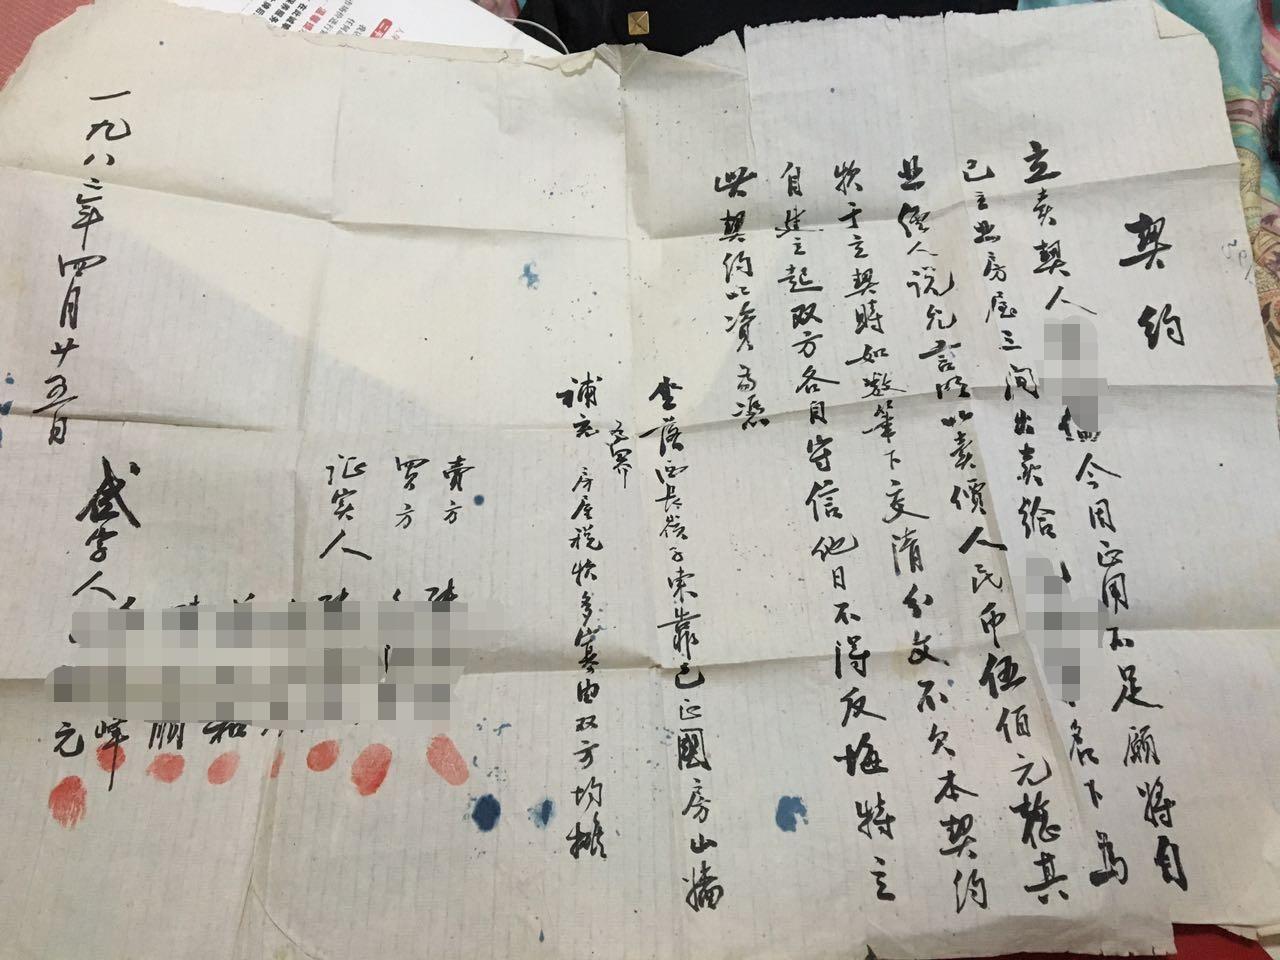 契约
立卖契人 今因正用不足愿将自
己主业房屋三间出卖给 名下为
业经人说允言明以卖價人民币伍佰元整其
于立契時如数筆下交清分文不欠本契约
自建立起双方各自守信他日不得反悔特立
此契约以資為憑
坐落西长岺子東靠已正國房山墙
为界
补充 房屋税 多寡由双方均擔
賣方
買方
证实人
字人
元
峰
一九八二年四月廿五日